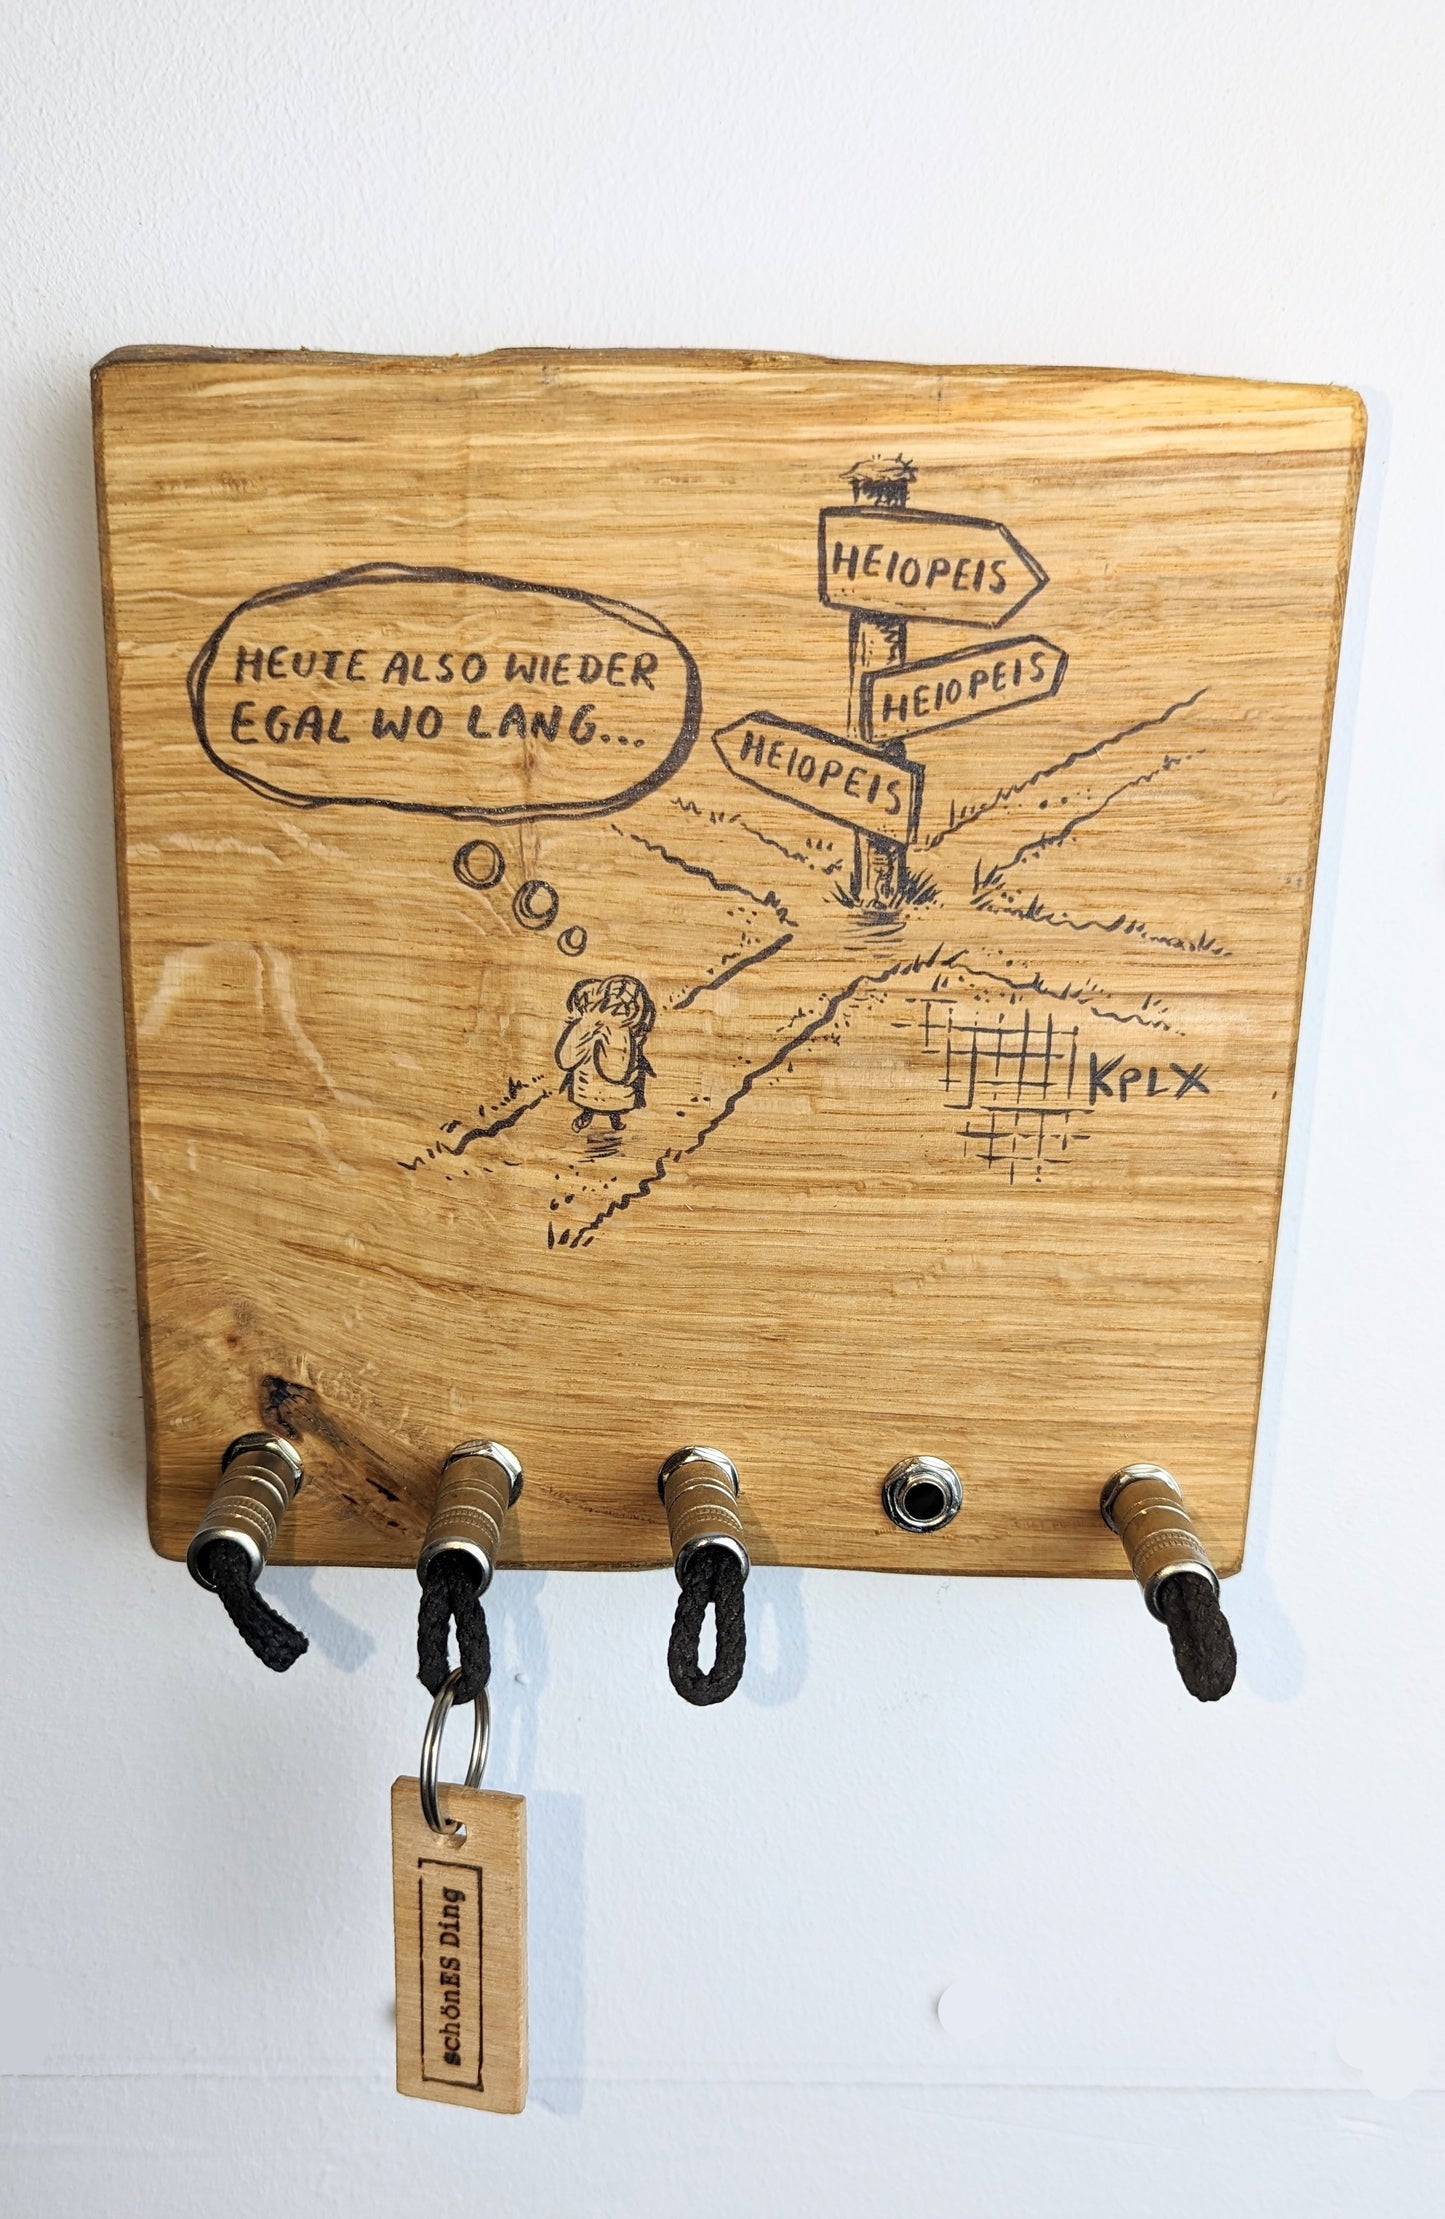 HEIOPEIS
HEUTE ALSO WIEDER
EGAL WO LANG...
HEIOPEIS
HEIOPEIS
KPLX
schönES Ding